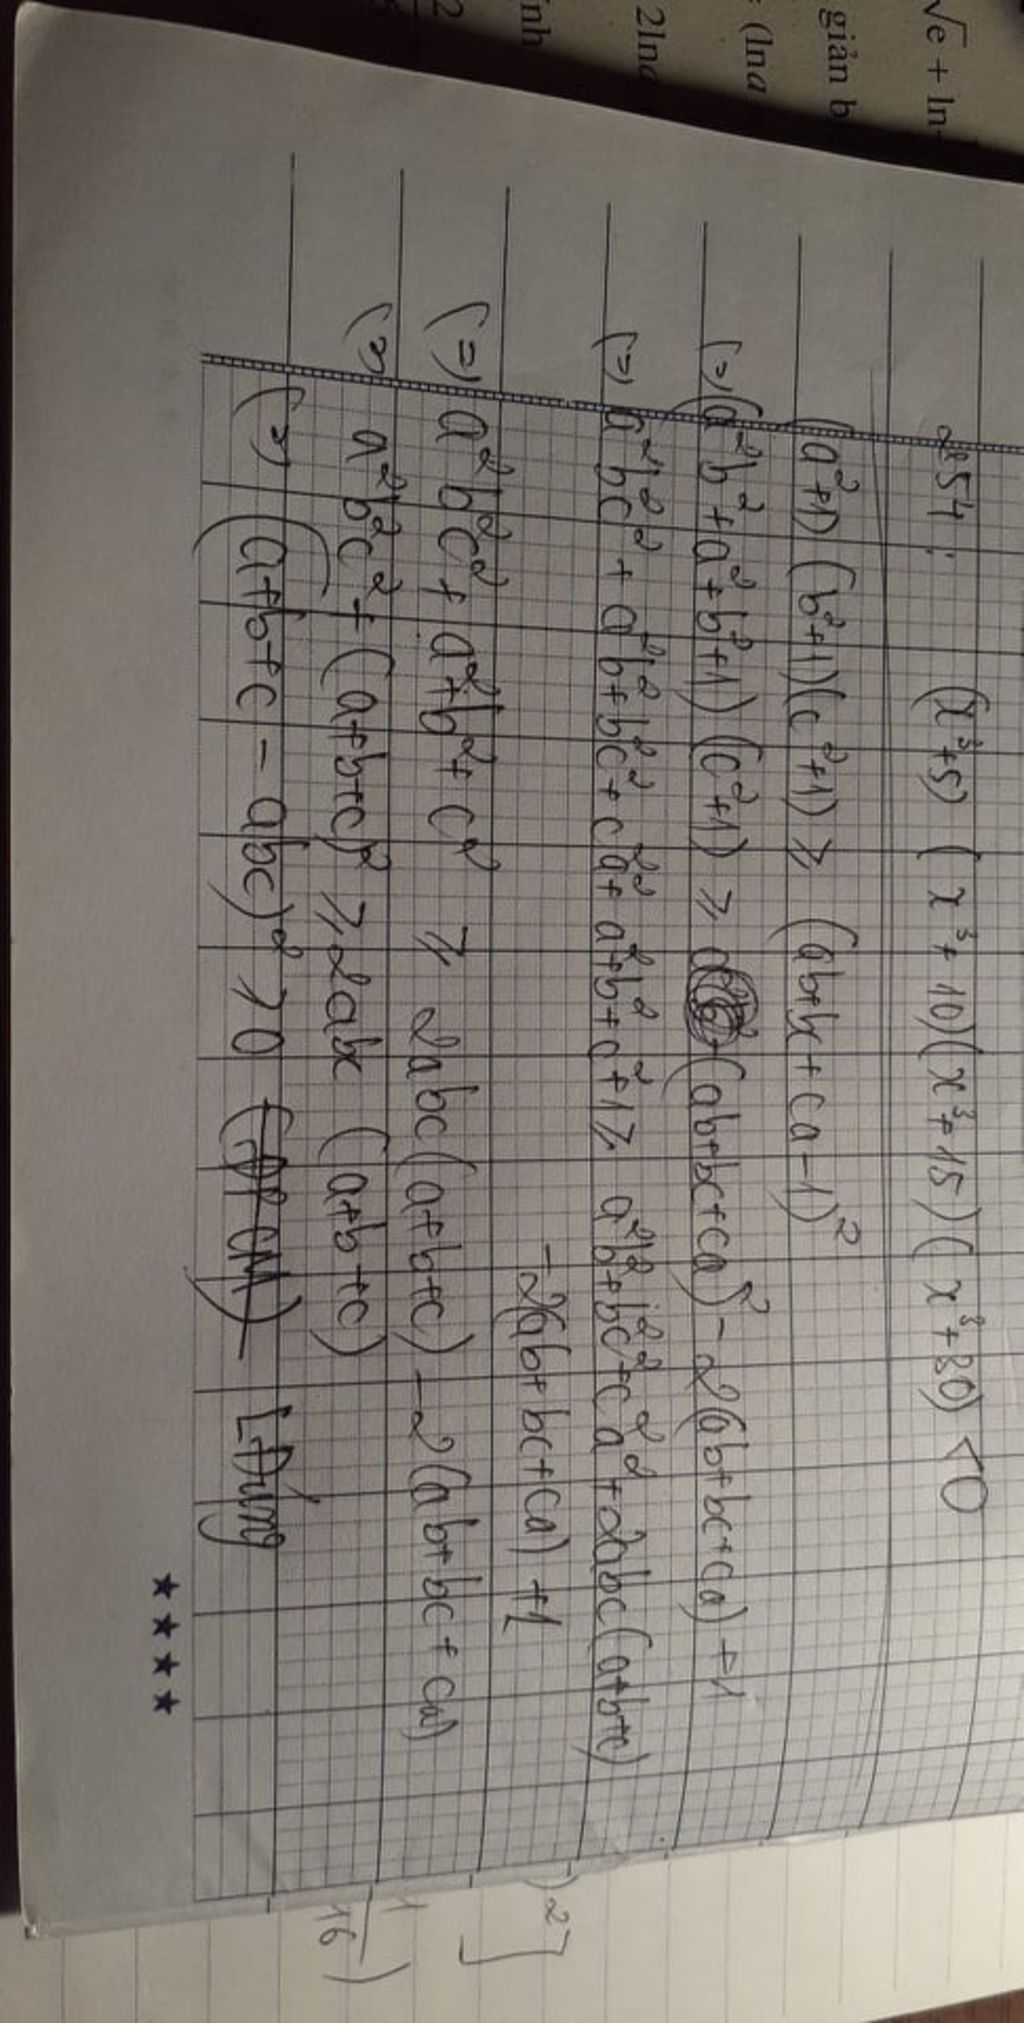 √e + ln
giản b
(lna
2lna
ính
2
254:
(x³+5) (x³+10)(x³+15)(x³+30) <0
(a²+1) (b²+1)(c²+1) ⩾ (ab+bc+ca-1)²
(=) (a²b²+a²+b²+1) (c²+1) ⩾ (ab+bc+ca)² - 2(ab+bc+ca) +1
(=) a²b²c² + a²b²+b²c²+c²a²+a²+b²+c²+1⩾ a²b²+b²c²+c²a²+2abc(a+b+c)
-2(ab+bc+ca) +1
(=) a²b²c²+a²+b²+c² ⩾ 2abc(a+b+c) -2(ab+bc+ca)
(=) a²b²c²+(a+b+c)² ⩾ 2abc (a+b+c)
(=) (a+b+c-abc)² ⩾0 (ĐPCM) [Đúng
★★★★
)²
]
1
16
)